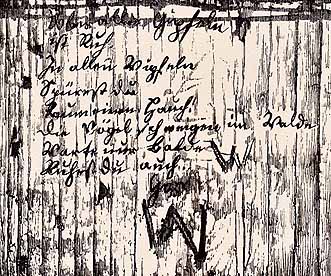 Über allen Gipfeln
ist Ruh
In allen Wipfeln
Spürest du
Kaum einen Hauch
Die Vögel schweigen im Walde
Warte nur Balde
W
Ruhst du auch
W